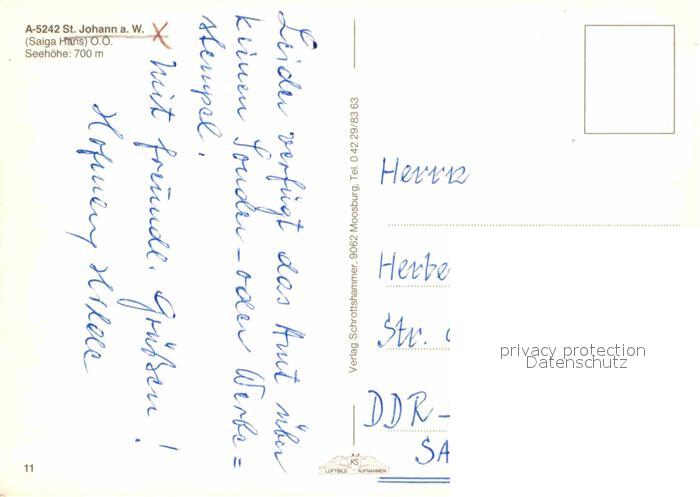 A-5242 St. Johann a. W.
(Saiga Hans) O.Ö.
Seehöhe: 700 m
Leider verfügt das Amt über
keinen Sonder- oder Werbe=
stempel.
Mit freundl. Grüßen!
Hilde
Verlag Schrottshammer, 9062 Moosburg, Tel. 0 42 29/83 63
Herrn
Herbe
Str.
DDR-
SA
privacy protection
Datenschutz
KS
LUFTBILD AUFNAHMEN
11